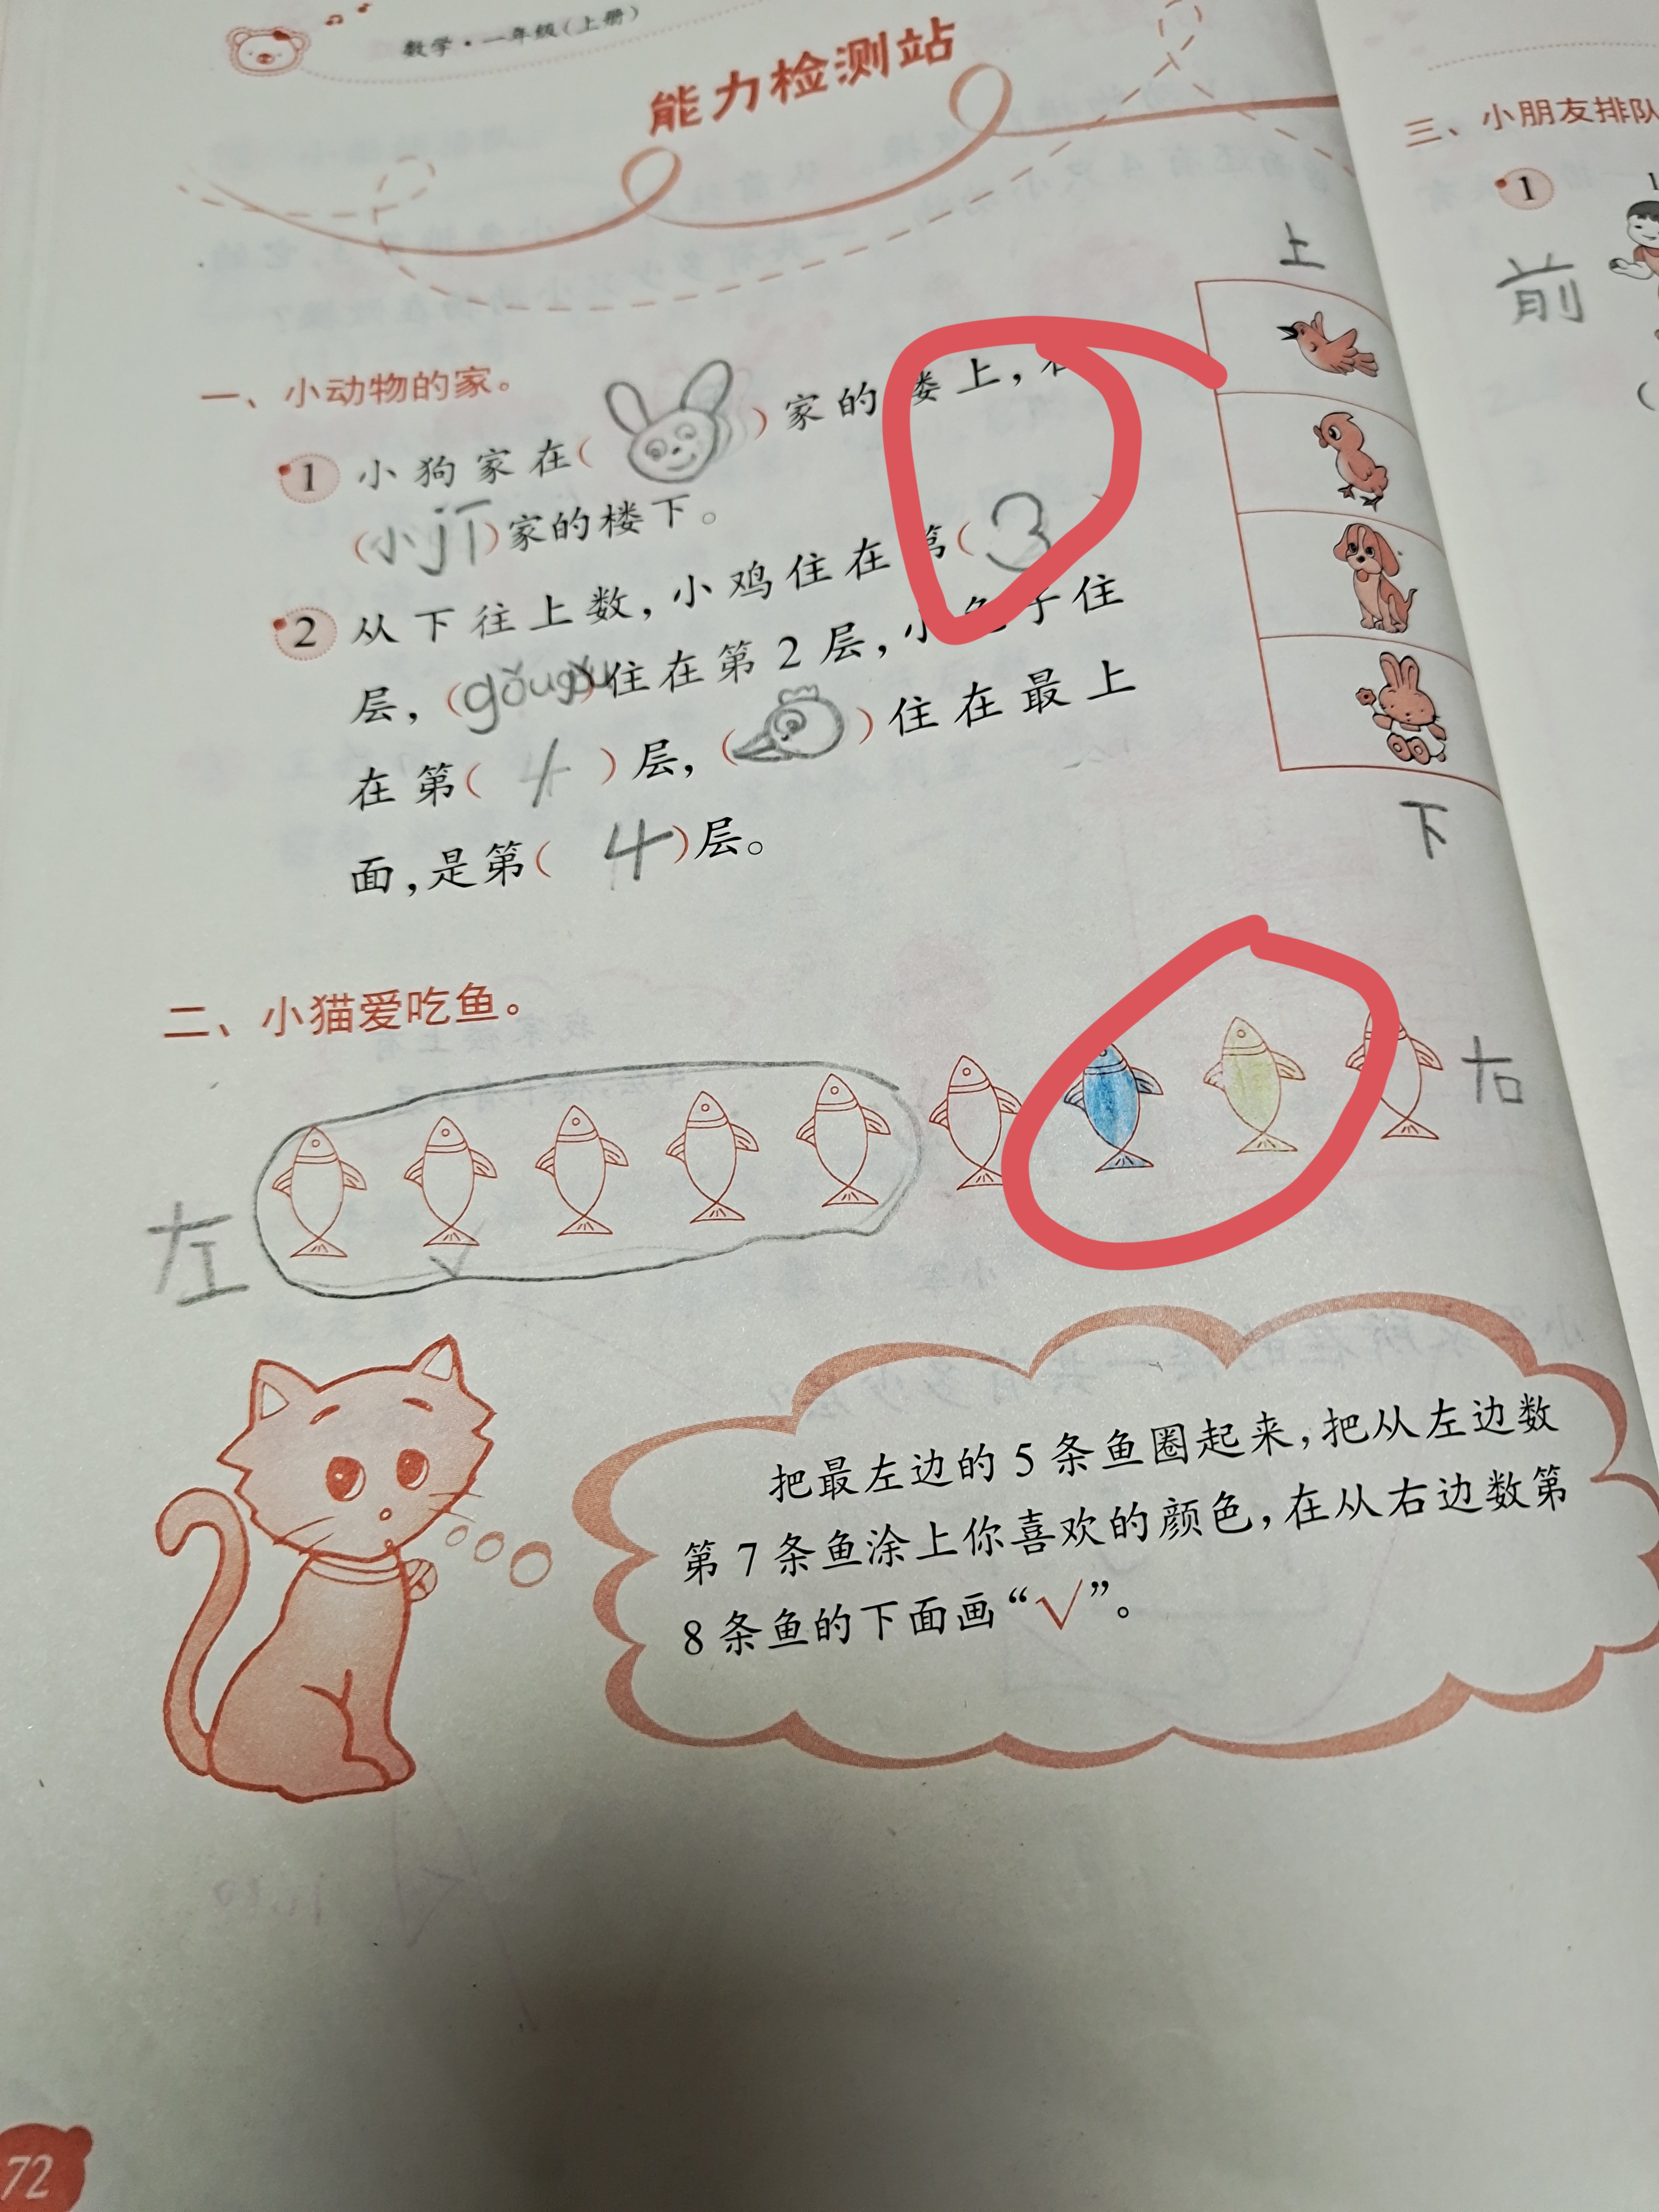 数学·一年级(上册)
能力检测站
一、小动物的家。
1 小狗家在( )家的楼上,在
(小jī)家的楼下。
2 从下往上数,小鸡住在第(3
层,(gǒugǒu)住在第2层,小兔子住
在第(4)层,( )住在最上
面,是第(4)层。
上
下
二、小猫爱吃鱼。
左
右
把最左边的5条鱼圈起来,把从左边数
第7条鱼涂上你喜欢的颜色,在从右边数第
8条鱼的下面画“√”。
72
三、小朋友排队
1
前
(